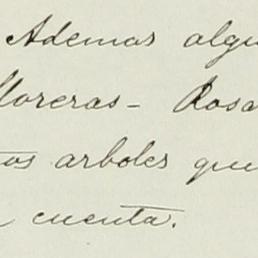 Ademas algu
lloreras - Rosa
tos arboles que
cuenta.